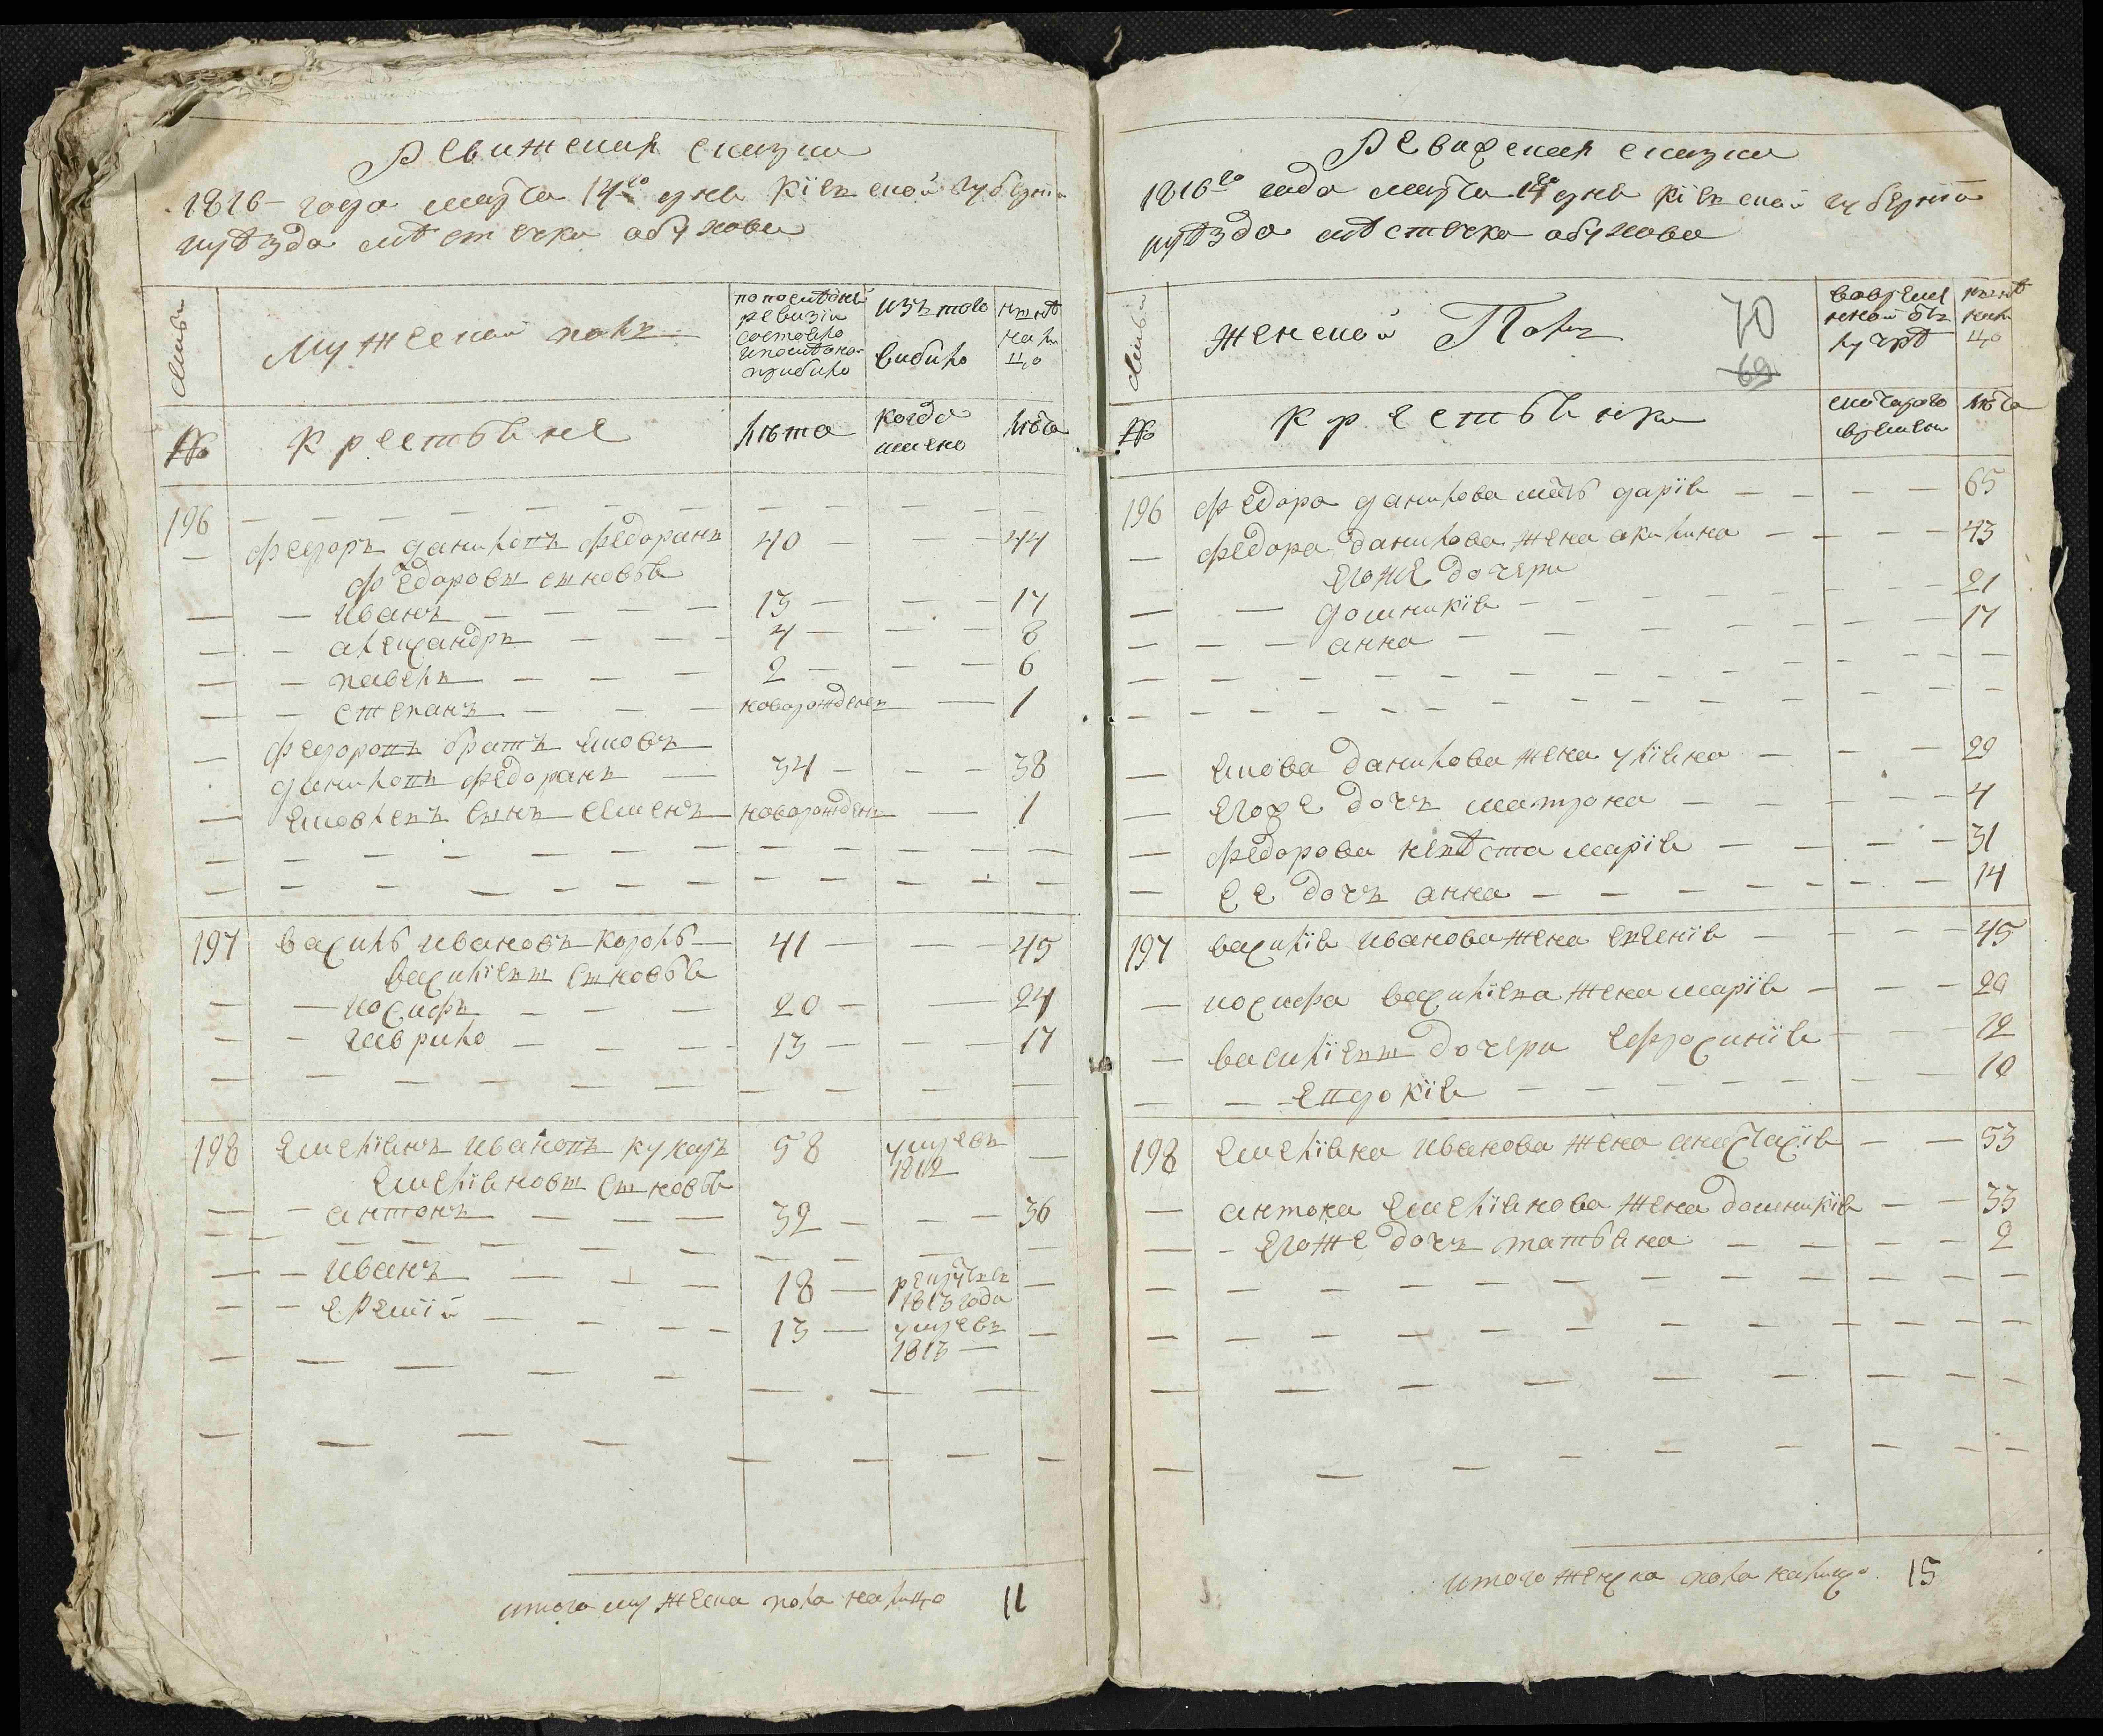 Ревижския сказки
1816- года марта 14го дня Кіевской губерніи
уѣзда мѣстечка обухова
семьи
Мужеской полъ
по послѣдней
ревизіи
состояло
и послѣ оной
прибыло
изъ того
выбыло
нынѣ
на ли
цо
№
Крестьяне
лѣта
когда
имено
лѣта
196
федоръ даниловъ федоранъ 40 44
федоровы сыновья
иванъ 13 17
александръ 4 8
павелъ 2 6
степанъ новорожденъ 1
федоровъ братъ Яковъ
даниловъ федоранъ 34 38
Яковлевъ сынъ семенъ новорожденъ 1
197 василь ивановъ король 41 45
василіевы сыновья
иосифъ 20 24
гаврило 13 17
198 Емеліянъ ивановъ кухаръ 58 умревъ
1812
Емеліяновы сыновья
антонъ 32 36
иванъ 18 рекрутъ въ
1813 года
еремій 13 умревъ
1813
итого мужеска пола налицо 11
Ревижския сказки
1816го года марта 14го дня Кіевской губерніи
уѣзда мѣстечка обухова
семьи
Женской Полъ
70
69
вовремен
ной от
лучкѣ
нынѣ
нали
цо
№
Крестьянки
с которого
времени
лѣта
196 федора данилова мать дарія 65
федора данилова жена акилина 43
егоже дочери
домникія 21
анна 17
Якова данилова жена уліяна 29
егоже дочъ матрона 4
федорова невѣста марія 31
ее дочъ анна 14
197 василія иванова жена евгенія 45
иосифа василіева жена марія 20
василіевы дочери ефросинія 12
евдокія 10
198 Емеліяна иванова жена анастасія 53
антона емеліянова жена домникія 33
егоже дочъ татьяна 2
итого женска пола налицо 15